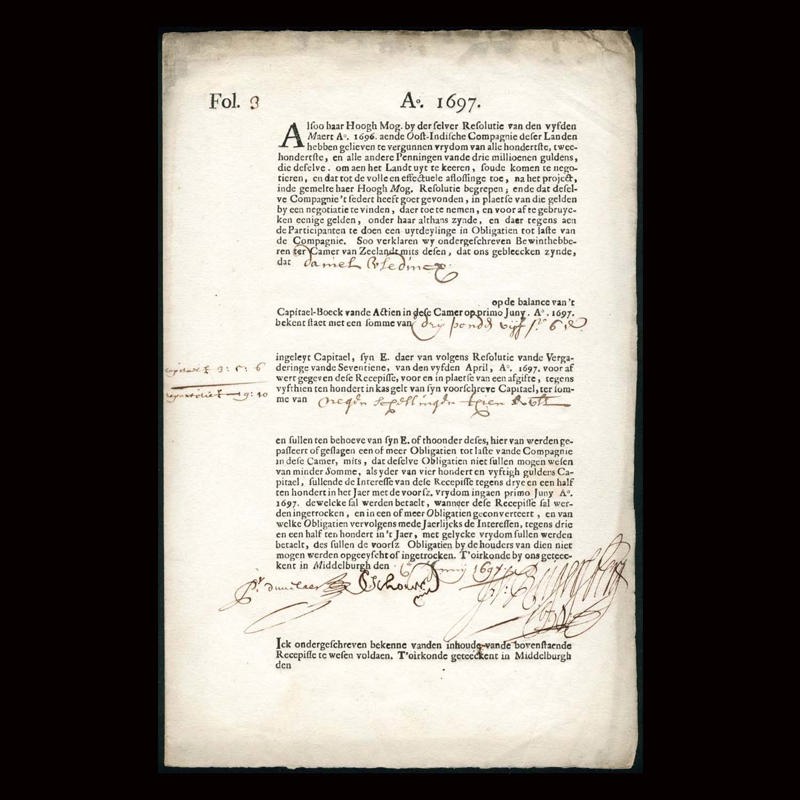 Fol. 3 Aº. 1697.
Alsoo haar Hoogh Mog. by der selver Resolutie van den vysden
Maert Aº. 1696. aende Oost-Indische Compagnie deser Landen
hebben gelieven te vergunnen vrydom van alle hondertste, twee-
hondertste, en alle andere Penningen vande drie millioenen guldens,
die deselve. om aen het Landt uyt te keeren, soude komen te nego-
tieren, en dat tot de volle en effectuele aflossinge toe, na het project,
inde gemelte haer Hoogh Mog. Resolutie begrepen; ende dat desel-
ve Compagnie 't sedert heeft goet gevonden, in plaetse van die gelden
by een negotiatie te vinden, daer toe te nemen, en voor af te gebruyc-
ken eenige gelden, onder haar althans zynde, en daer tegens aen
de Participanten te doen een uytdeylinge in Obligatien tot laste van
de Compagnie. Soo verklaren wy ondergeschreven Bewinthebbe-
ren ter Camer van Zeelandt mits desen, dat ons gebleecken zynde,
dat
op de balance van 't
Capitael-Boeck vande Actien in dese Camer op primo Juny. Aº. 1697.
bekent staet met een somme van
ingeleyt Capitael, syn E. daer van volgens Resolutie vande Verga-
deringe vande Seventiene, van den vysden April, Aº. 1697. voor af
wert gegeven dese Recepisse, voor en in plaetse van een afgifte, tegens
vysthien ten hondert in kas gelt van syn voorschreve Capitael, ter som-
me van negen schellingen thien
3 : 5 : 6
9 : 10
en sullen ten behoeve van syn E. of thoonder deses, hier van werden ge-
passeert of geslagen een of meer Obligatien tot laste vande Compagnie
in dese Camer, mits, dat deselve Obligatien niet sullen mogen wesen
van minder Somme, als yder van vier hondert en vyftigh guldens Ca-
pitael, sullende de Interesse van dese Recepisse tegens drye en een half
ten hondert in het Jaer met de voorsz. vrydom ingaen primo Juny Aº.
1697. dewelcke sal werden betaelt, wanneer dese Recepisse sal wer-
den ingetrocken, en in een of meer Obligatien geconverteert, en van
welke Obligatien vervolgens mede Jaerlijcks de Interessen, tegens drie
en een half ten hondert in 't Jaer, met gelycke vrydom sullen werden
betaelt, des sullen de voorsz Obligatien by de houders van dien niet
mogen werden opgeeyscht of ingetrocken. T'oirkonde by ons geteec-
kent in Middelburgh den 1697
Ick ondergeschreven bekenne vanden inhoude vande bovenstaende
Recepisse te wesen voldaen. T'oirkonde geteeckent in Middelburgh
den